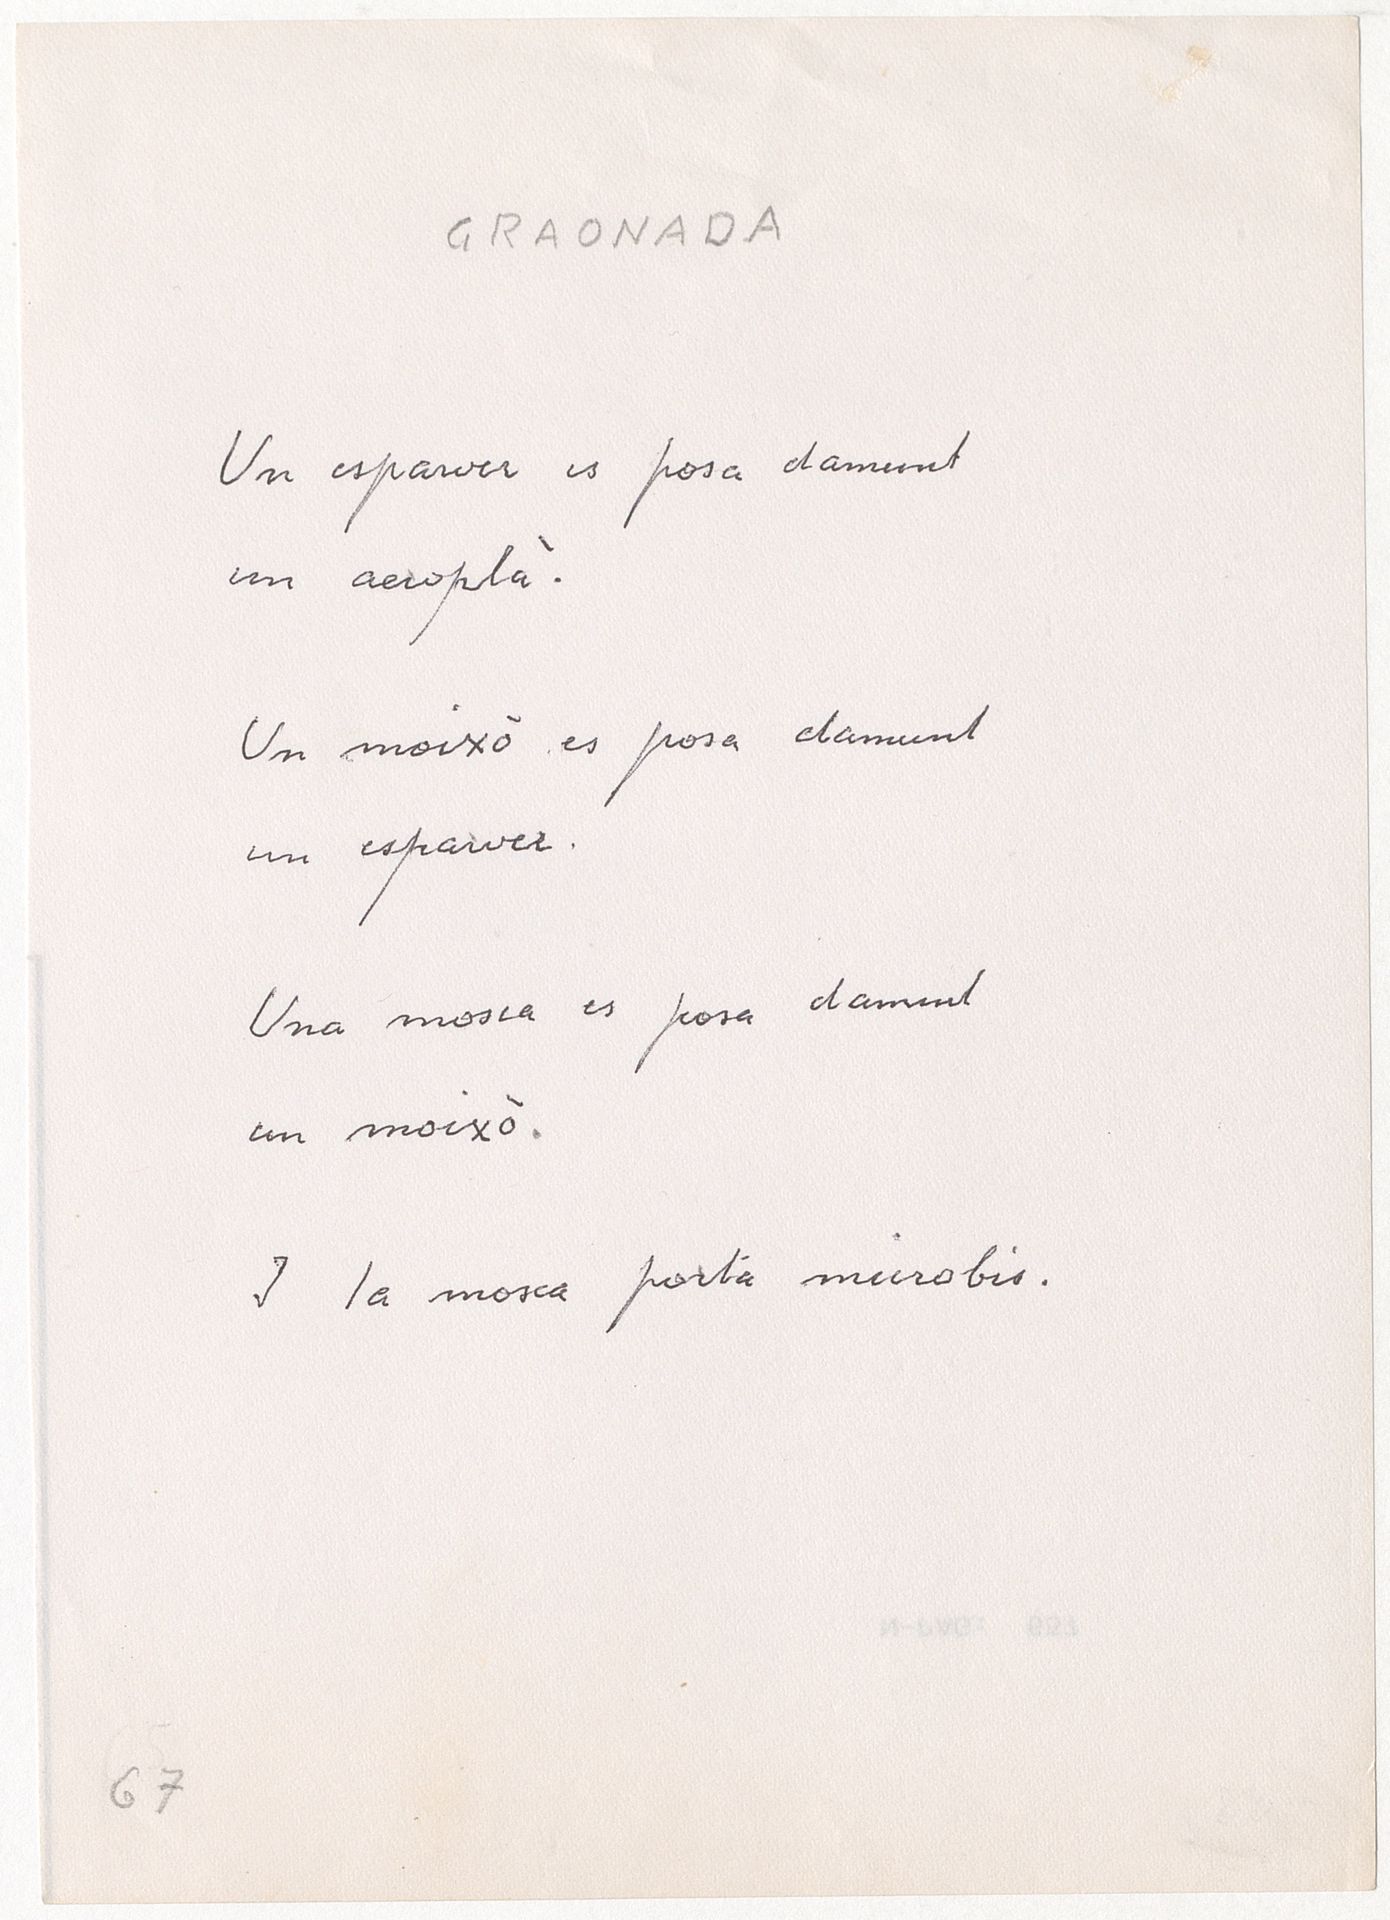 GRAONADA
Un esparver es posa damunt
un aeroplà.
Un moixò es posa damunt
un esparver.
Una mosca es posa damunt
un moixò.
I la mosca porta microbis.
67